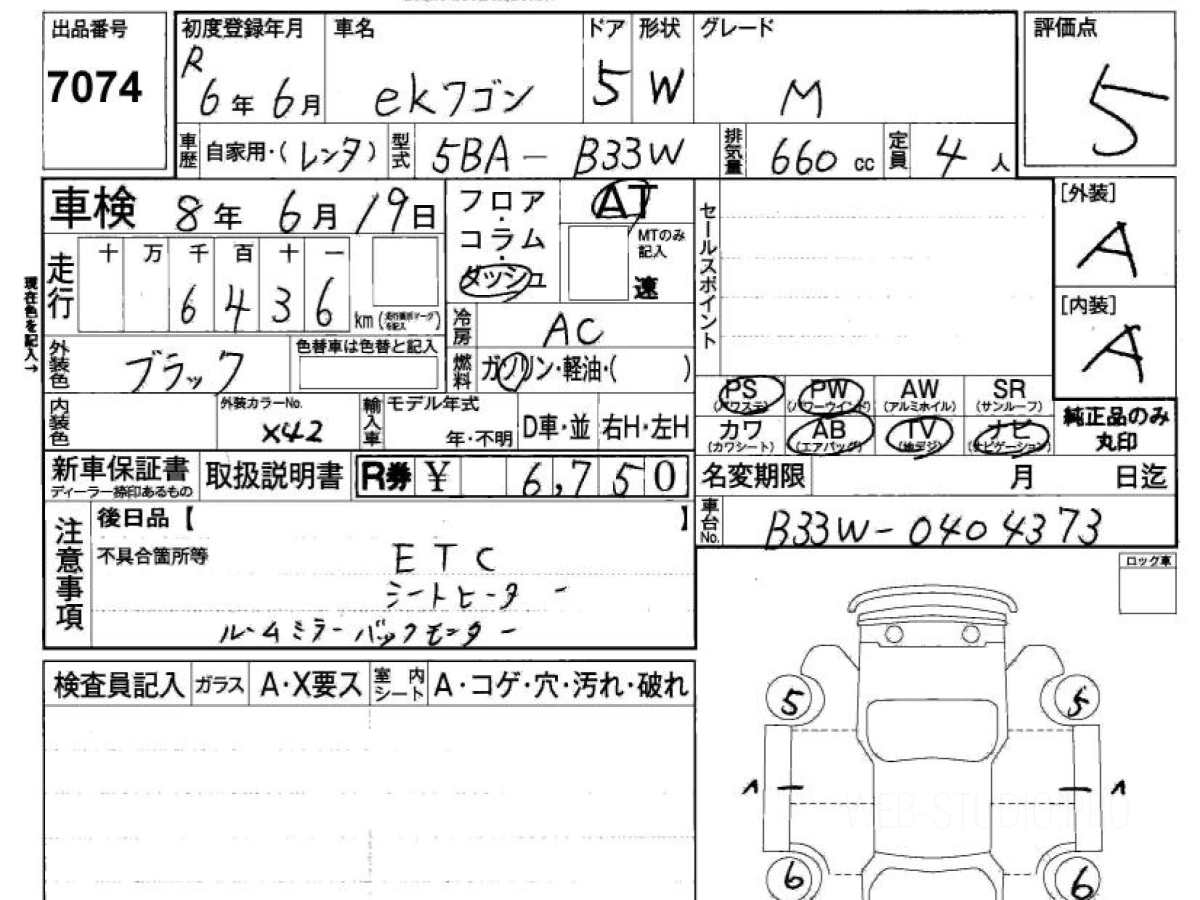 出品番号
7074
初度登録年月
R 6年 6月
車名
ekワゴン
ドア
5
形状
W
グレード
M
評価点
5
車歴
自家用・(レンタ)
型式
5BA-B33W
排気量
660 cc
定員
4人
車検
8年 6月 19日
フロア・コラム・ダッシュ
AT
MTのみ記入
速
セールスポイント
[外装]
A
現在色を記入→
走行
十 万 千 百 十 一
6 4 3 6
km(走行表示マークを記入)
[内装]
A
冷房
AC
外装色
ブラック
色替車は色替と記入
燃料
ガソリン・軽油・( )
PS
(パワステ)
PW
(パワーウインド)
AW
(アルミホイル)
SR
(サンルーフ)
カワ
(カワシート)
AB
(エアバッグ)
TV
(地デジ)
ナビ
(ナビゲーション)
純正品のみ丸印
内装色
外装カラーNo.
X42
輸入車
モデル年式
年・不明
D車・並
右H・左H
新車保証書
ディーラー捺印あるもの
取扱説明書
R券 ¥ 6,750
名変期限 月 日迄
車台No.
B33W-0404373
注意事項
後日品【 】
不具合箇所等
ETC
シートヒーター
ルームミラーバックモニター
ロック車
検査員記入
ガラス
A・X要ス
室内シート
A・コゲ・穴・汚れ・破れ
5 5
1 1
WEB-STUDIO.PRO
6 6